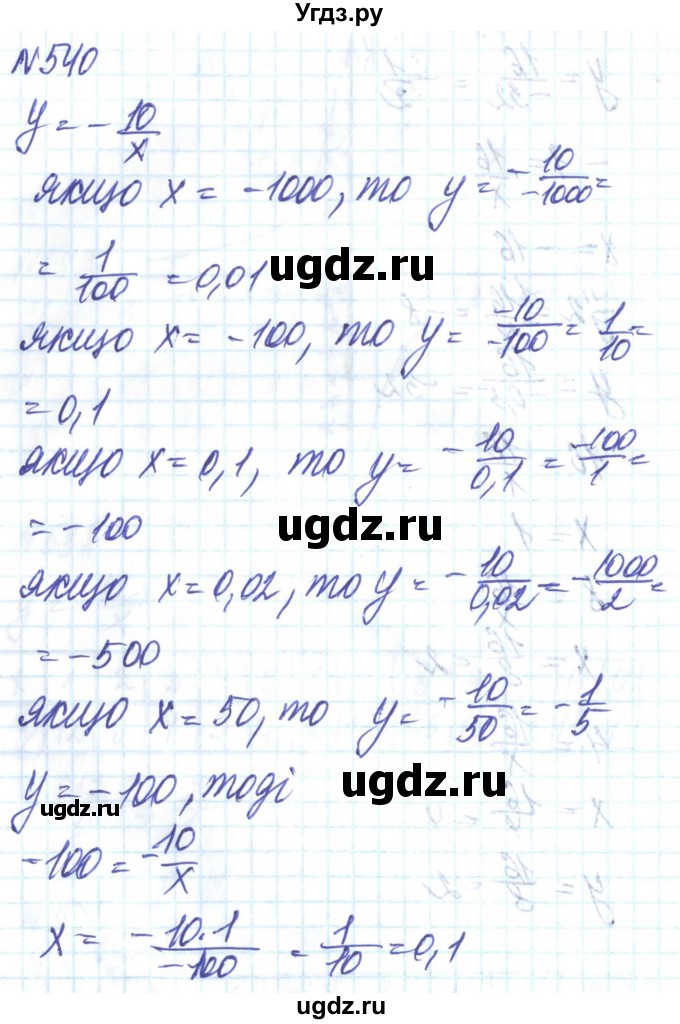 Угдз.ру
№540
y = - 10/x
якщо x = -1000, то y = - 10/-1000 =
= 1/100 = 0,01
ugdz.ru
якщо x = -100, то y = -10/-100 = 1/10 =
= 0,1
якщо x = 0,1, то y = - 10/0,1 = -100/1 =
= -100
ugdz.ru
якщо x = 0,02, то y = - 10/0,02 = - 1000/2 =
= -500
якщо x = 50, то y = - 10/50 = - 1/5
y = -100, тоді
ugdz.ru
ugdz.ru
-100 = - 10/x
x = -10·1/-100 = 1/10 = 0,1
ugdz.ru